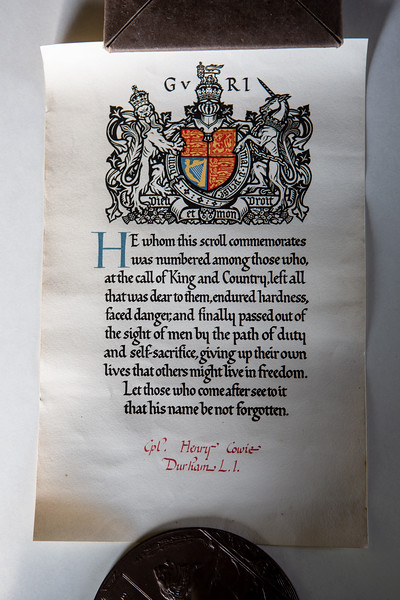 GvRI
Dieu et mon Droit
HE whom this scroll commemorates
was numbered among those who,
at the call of King and Country, left all
that was dear to them, endured hardness,
faced danger, and finally passed out of
the sight of men by the path of duty
and self-sacrifice, giving up their own
lives that others might live in freedom.
Let those who come after see to it
that his name be not forgotten.
Cpl. Henry Cowie
Durham L.I.